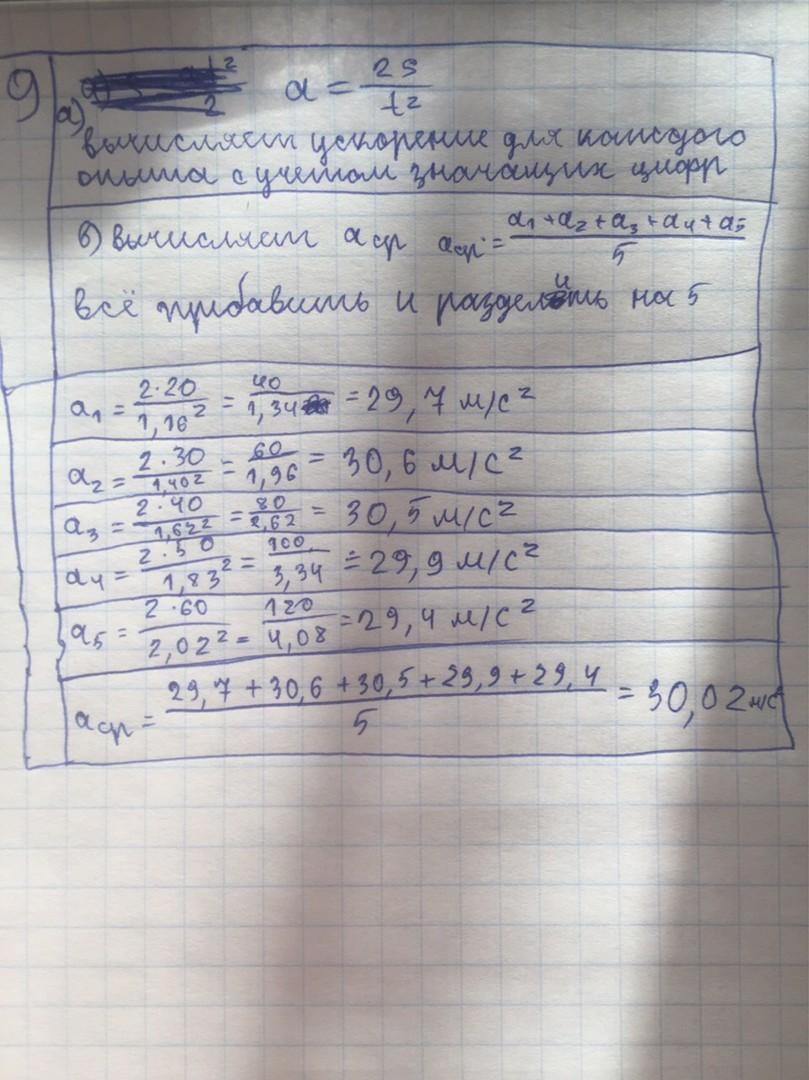 9
а) a = 2S / t²
вычисляет ускорение для каждого
опыта с учетом значащих цифр
в) вычисляет aср aср = a₁ + a₂ + a₃ + a₄ + a₅ / 5
всё прибавить и разделить на 5
a₁ = 2·20 / 1,16² = 40 / 1,34 = 29,7 м/с²
a₂ = 2·30 / 1,40² = 60 / 1,96 = 30,6 м/с²
a₃ = 2·40 / 1,62² = 80 / 2,62 = 30,5 м/с²
a₄ = 2·50 / 1,83² = 100 / 3,34 = 29,9 м/с²
a₅ = 2·60 / 2,02² = 120 / 4,08 = 29,4 м/с²
aср = 29,7 + 30,6 + 30,5 + 29,9 + 29,4 / 5 = 30,02 м/с²